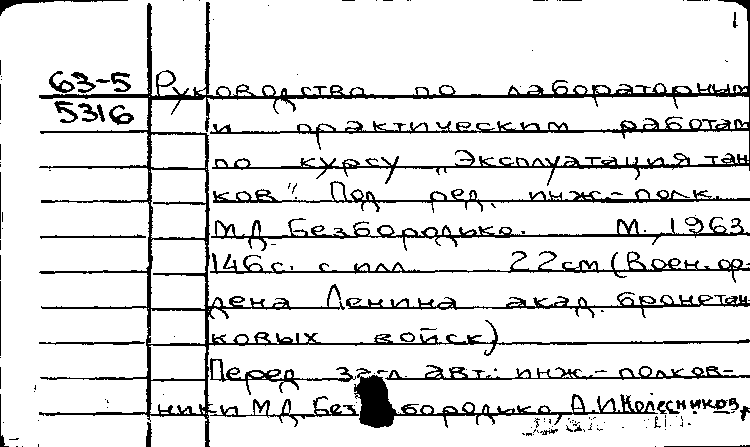 1
63-5 Руководство по лабораторным
5316 и практическим работам
по курсу „Эксплуатация тан
ков". Под ред. инж.-полк.
М.Д. Безбородько. М., 1963.
146с. с илл. 22см (Воен. ор-
дена Ленина акад. бронетан
ковых войск)
Перед загл. авт.: инж.-полков-
ники М.Д. Безбородько, А.И.Колесников,